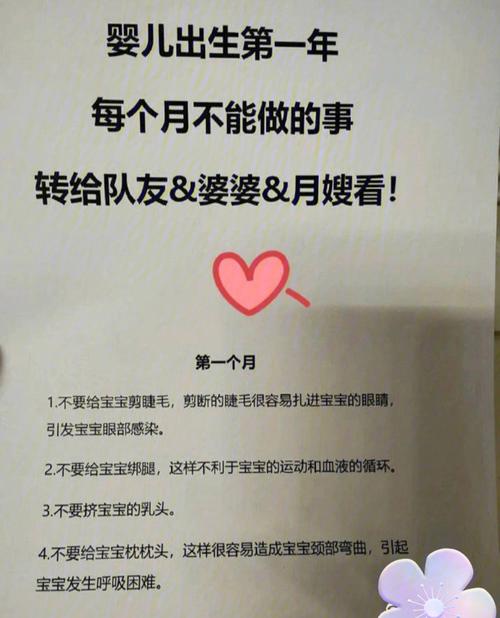 婴儿出生第一年
每个月不能做的事
转给队友&婆婆&月嫂看！
第一个月
1.不要给宝宝剪睫毛，剪断的睫毛很容易扎进宝宝的眼睛，
引发宝宝眼部感染。
2.不要给宝宝绑腿，这样不利于宝宝的运动和血液的循环。
3.不要挤宝宝的乳头。
4.不要给宝宝枕枕头，这样很容易造成宝宝颈部弯曲，引起
宝宝发生呼吸困难。